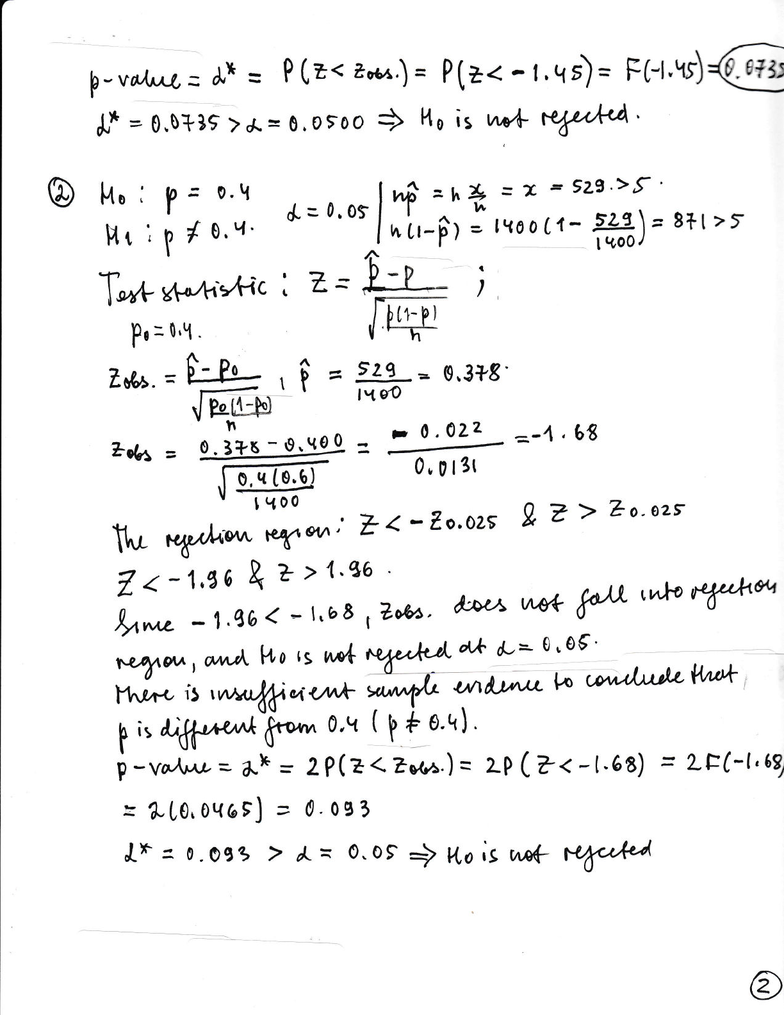 p-value = α* = P(Z < Zobs.) = P(Z < -1.45) = F(-1.45) = 0.0735
α* = 0.0735 > α = 0.0500 ⇒ H₀ is not rejected.
② H₀ : p = 0.4
H₁ : p ≠ 0.4.
α = 0.05
np̂ = n x/n = x = 529 > 5.
n(1-p̂) = 1400(1 - 529/1400) = 871 > 5
Test statistic : Z = (p̂ - p)/√(p(1-p)/n) ;
p₀ = 0.4.
Zobs. = (p̂ - p₀)/√(p₀(1-p₀)/n) , p̂ = 529/1400 = 0.378.
Zobs = (0.378 - 0.400)/√(0.4(0.6)/1400) = -0.022/0.0131 = -1.68
The rejection region: Z < -Z0.025 & Z > Z0.025
Z < -1.96 & Z > 1.96.
Since -1.96 < -1.68, Zobs. does not fall into rejection
region, and H₀ is not rejected at α = 0.05.
There is insufficient sample evidence to conclude that
p is different from 0.4 (p ≠ 0.4).
p-value = α* = 2P(Z < Zobs.) = 2P(Z < -1.68) = 2F(-1.68)
= 2(0.0465) = 0.093
α* = 0.093 > α = 0.05 ⇒ H₀ is not rejected
②